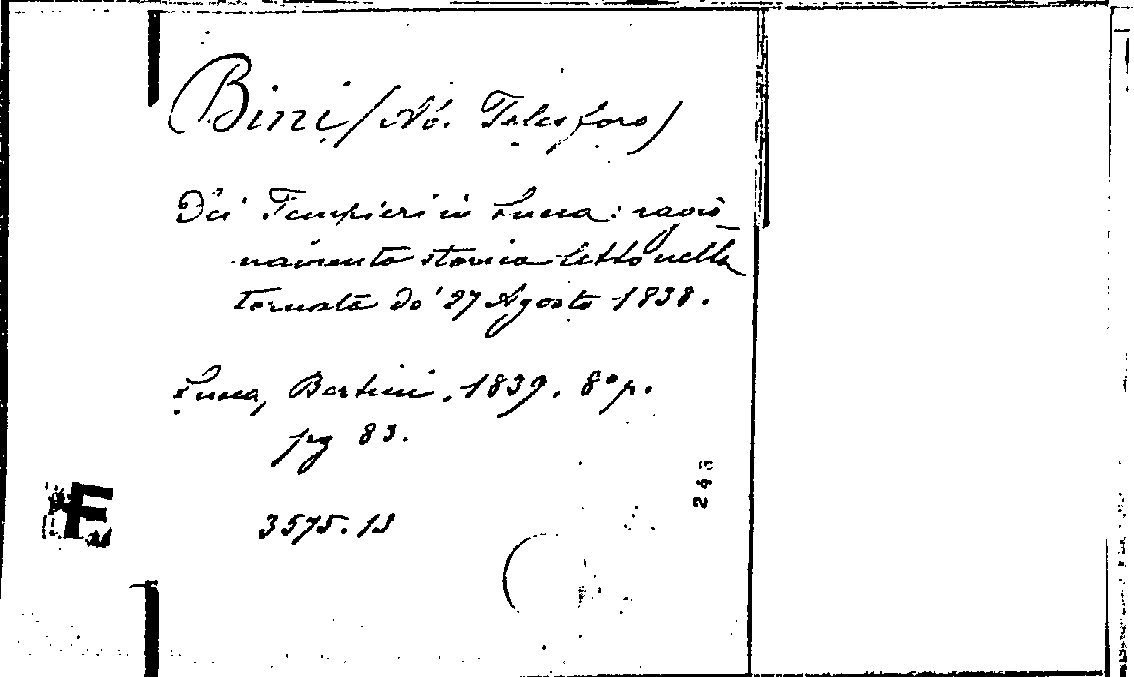 Bini (Ab. Telesforo)
Dei Tempieri in Lucca: ragio
namento storico letto nella
tornata de' 27 Agosto 1838.
Lucca, Bertini, 1839. 8° p.
pg 83.
3575.13
F
243